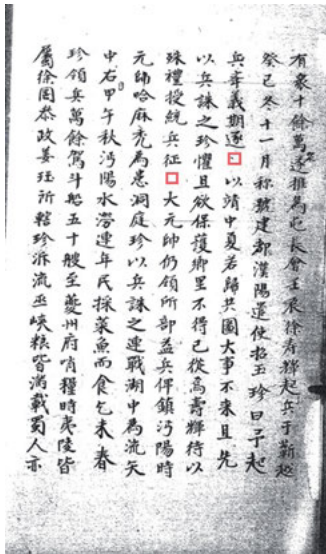 有衆十餘萬遂推為屯長會壬辰徐壽輝起兵于蘄越
癸巳冬十一月称號建都漢陽遣使招玉珍曰予起
兵率義期逐以靖中夏若歸共圖大事不来且先
以兵誅之珍懼且欲保護鄉里不得已從焉壽輝待以
殊禮授統兵征大元帥仍領所部益兵俾鎮沔陽時
元帥哈麻禿為患洞庭珍以兵誅之連戰湖中為流矢
中右甲午秋沔陽水澇連年民採菜魚而食乞来春
珍領兵萬餘駕斗船五十艘至夔州府哨糧時夷陵皆
屬徐固恭政姜珏所轄珍泝流巫峡粮皆満載蜀人亦